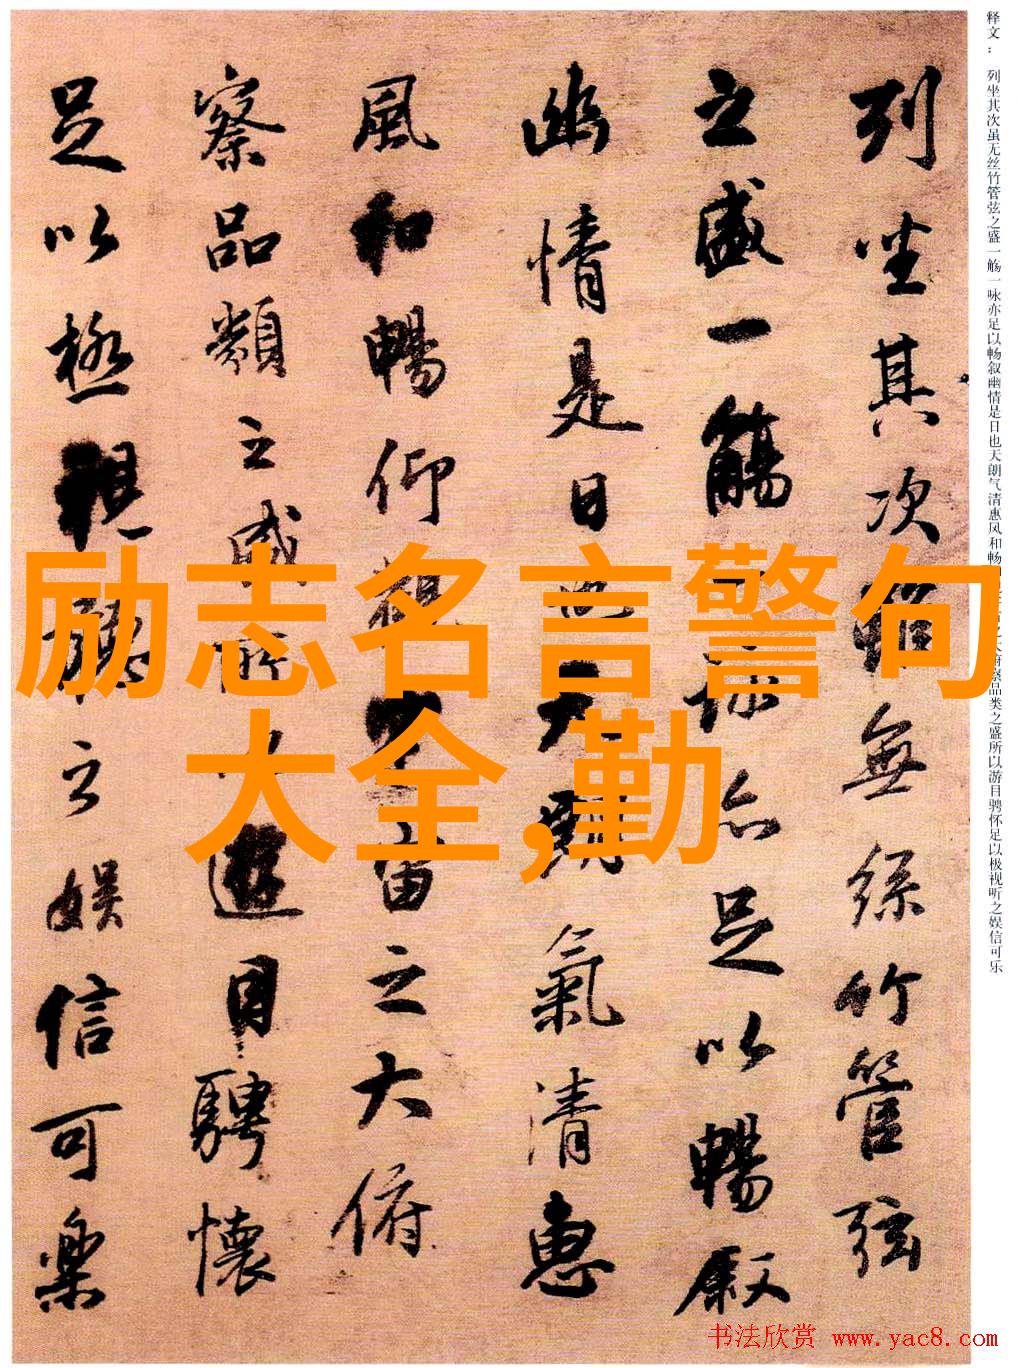 释文： 列坐其次虽无丝竹管弦之盛一觞一咏亦足以畅叙幽情是日也天朗气清惠风和畅之大俯察品类之盛所以游目骋怀足以极视听之娱信可乐
列坐其次雖無絲竹管弦
之盛一觴詠亦足以暢叙
幽情是日也天朗氣清惠
風和暢仰觀宙之大俯
察品類之盛所遊目騁懷
足以極視聽之娛信可樂
励志名言警句
大全,勤
书法欣赏 www.yac8.com